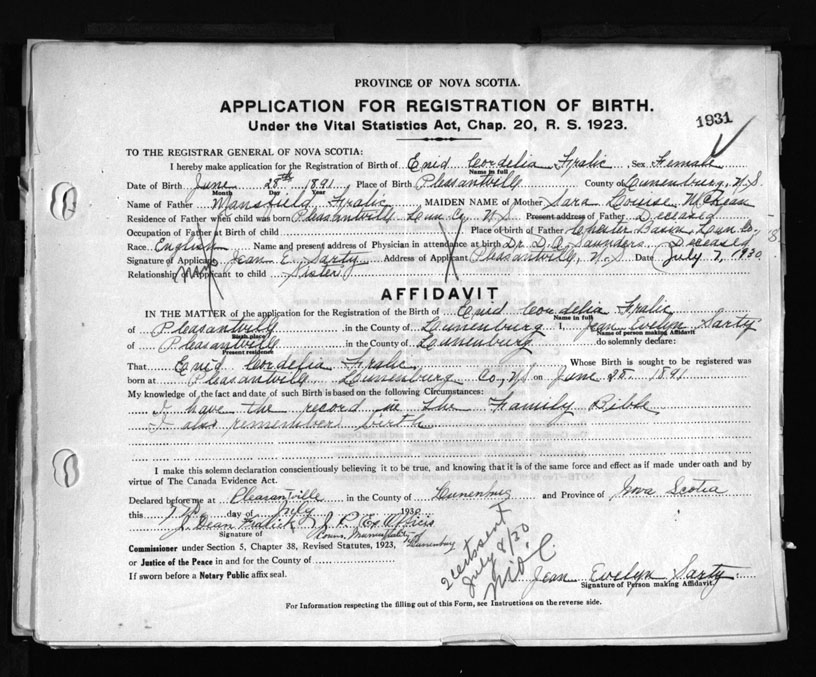 PROVINCE OF NOVA SCOTIA.
APPLICATION FOR REGISTRATION OF BIRTH.
1931
Under the Vital Statistics Act, Chap. 20, R. S. 1923.
TO THE REGISTRAR GENERAL OF NOVA SCOTIA:
I hereby make application for the Registration of Birth of Enid Cordelia Fralic Sex Female
Name in full
Date of Birth June 28th 1891 Place of Birth Pleasantville County of Lunenburg, N.S
Month Day Year
Name of Father Mansfield Fralic MAIDEN NAME of Mother Sara Louise
Residence of Father when child was born Pleasantville Lun Co. N.S Present address of Father Deceased
Occupation of Father at Birth of child Place of birth of Father Chester Basin Lun Co.
Race English Name and present address of Physician in attendance at birth Dr. D.A. Saunders, Deceased
Signature of Applicant Jean E. Sarty Address of Applicant Pleasantville, N.S Date July 7, 1930
Relationship of Applicant to child Sister
AFFIDAVIT
IN THE MATTER of the application for the Registration of the Birth of Enid Cordelia Fralic
Name in full
of Pleasantville in the County of Lunenburg I, Jean Evelyn Sarty
Birth place Name of person making Affidavit
of Pleasantville in the County of Lunenburg do solemnly declare:
Present residence
That Enid Cordelia Fralic Whose Birth is sought to be registered was
born at Pleasantville Lunenburg Co, N.S on June 28 1891
My knowledge of the fact and date of such Birth is based on the following Circumstances:
I have the record in the Family Bible
I also remember birth
I make this solemn declaration conscientiously believing it to be true, and knowing that it is of the same force and effect as if made under oath and by
virtue of The Canada Evidence Act.
Declared before me at Pleasantville in the County of Lunenburg and Province of Nova Scotia
this 7th day of July 1930
J. Dean Fralick J. P. Ex Officio
Signature of
Commissioner under Section 5, Chapter 38, Revised Statutes, 1923, Lunenburg
or Justice of the Peace in and for the County of
If sworn before a Notary Public affix seal.
2 certs sent
July 8/30
Jean Evelyn Sarty
Signature of Person making Affidavit.
For Information respecting the filling out of this Form, see Instructions on the reverse side.